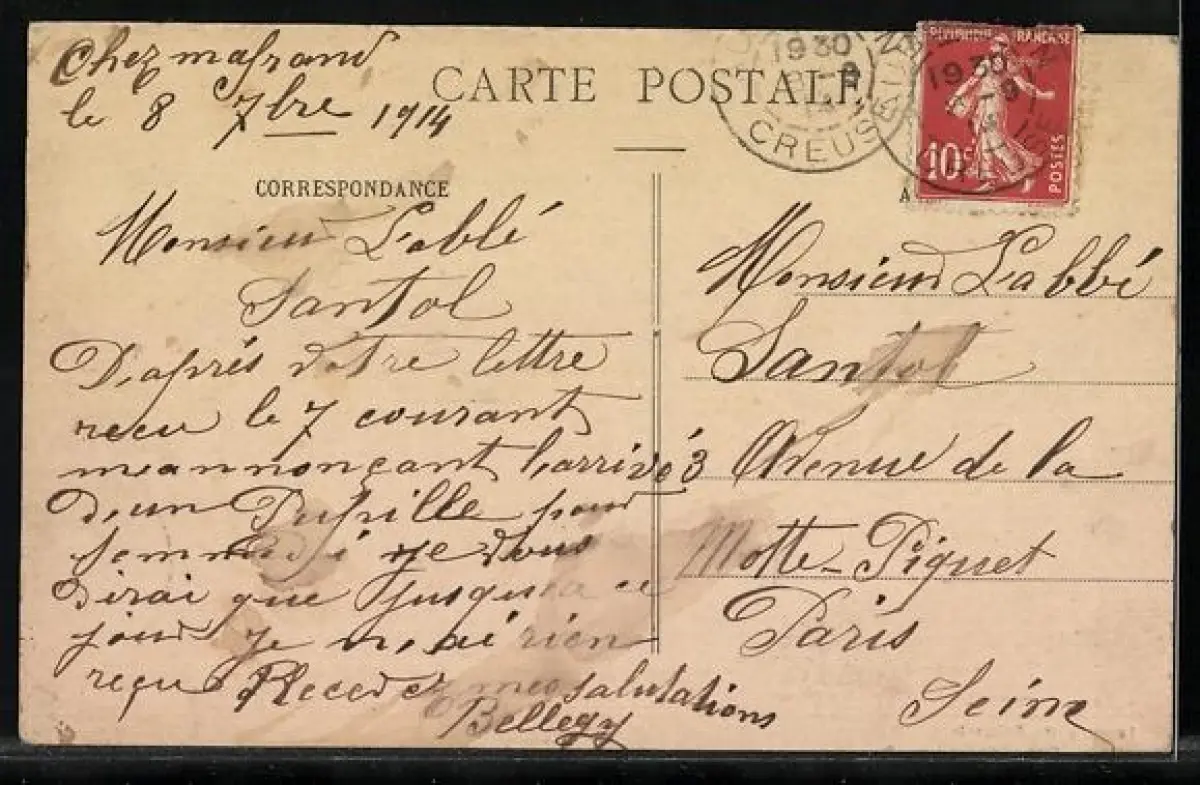 Chez mafrand
le 8 7bre 1914
CARTE POSTALE
CORRESPONDANCE
Monsieur Lablé
Santol
D,aprés votre lettre
recu le 7 courant
me annonçant l,arrivé
D,un Pupille pour
je vous
Dirai que Jusqua ce
jour je n,ai rien
reçu Recevez mes salutations
Bellegy
1930
CREUSE
REPUBLIQUE FRANÇAISE
10c
POSTES
Monsieur Labbé
Santol
3 Avenue de la
Motte-Piquet
Paris
Seine